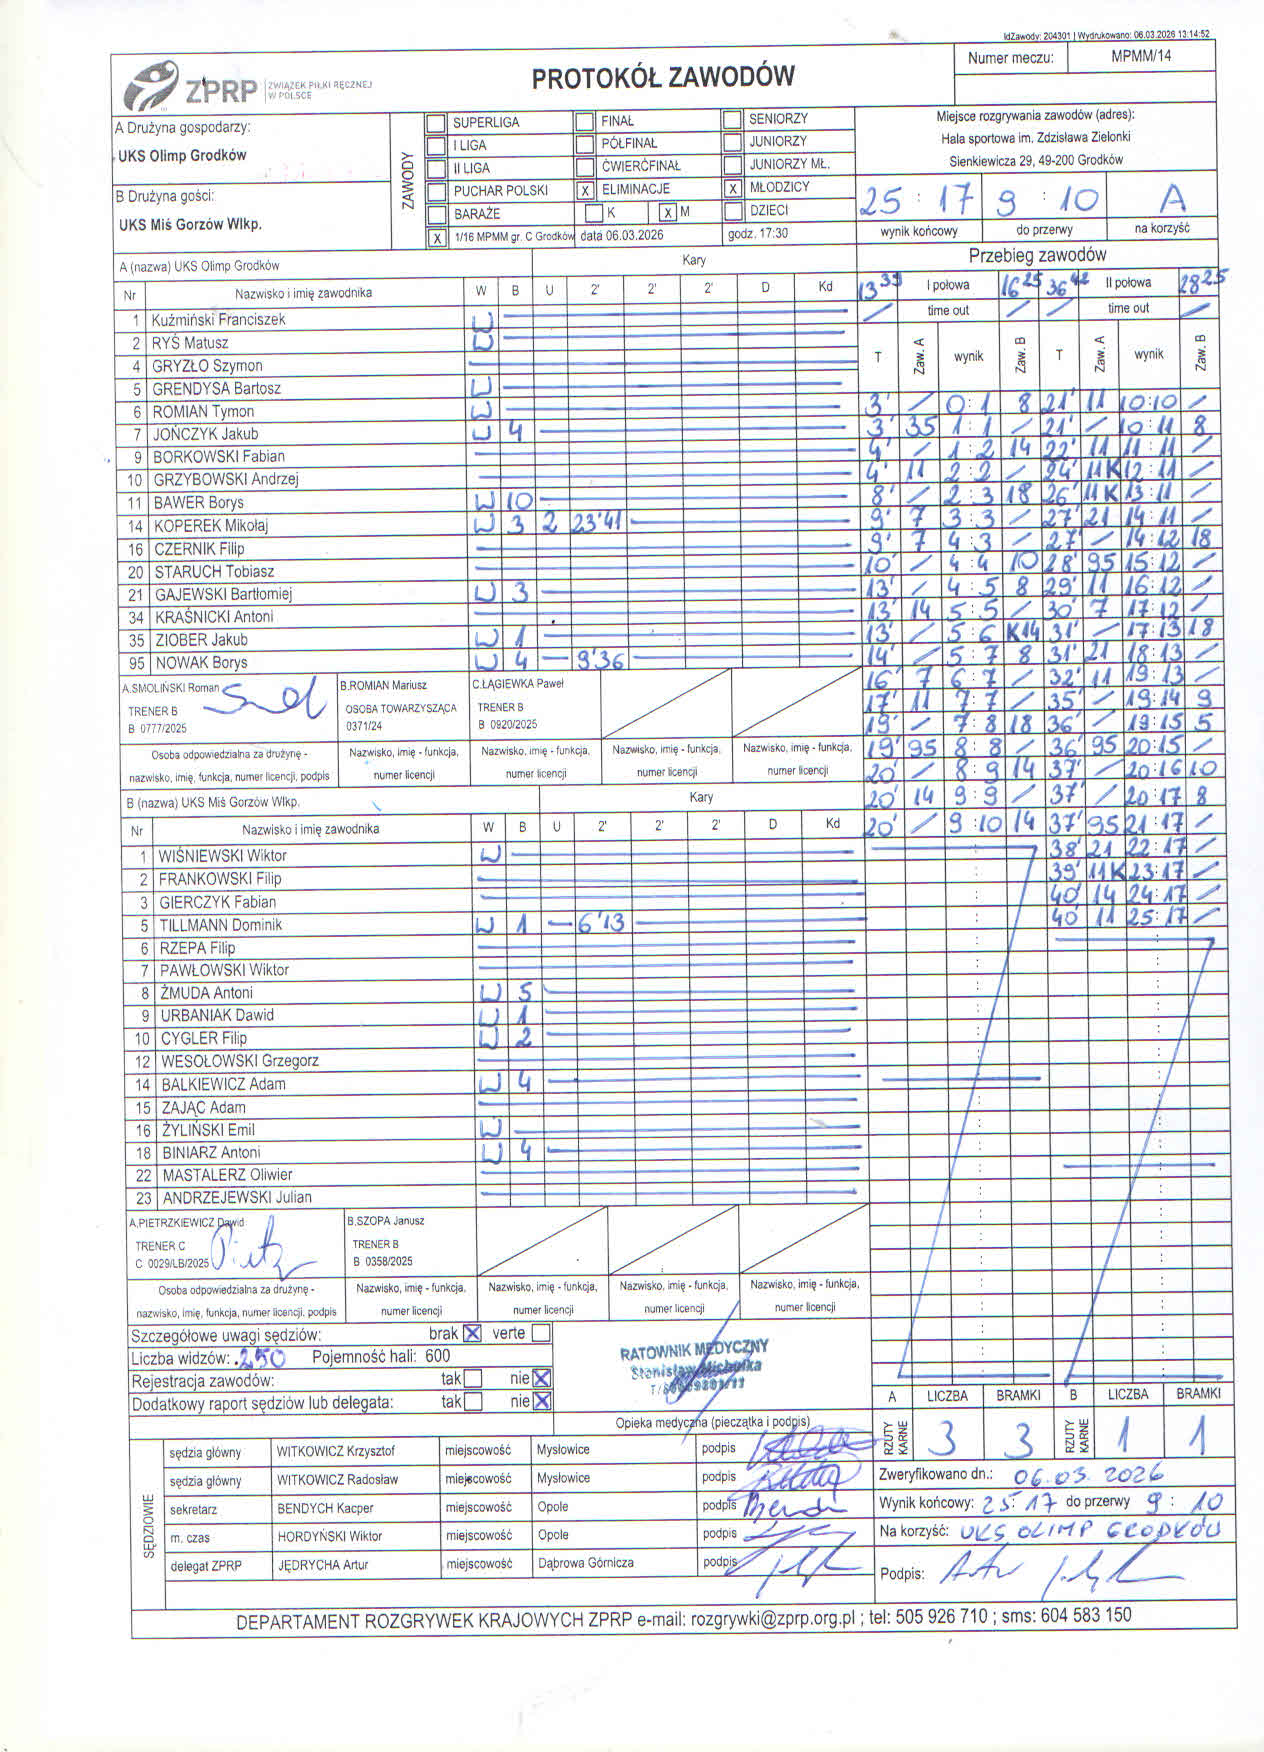 IdZawody: 204301 | Wydrukowano: 06.03.2026 13:14:52
ZPRP ZWIĄZEK PIŁKI RĘCZNEJ W POLSCE
PROTOKÓŁ ZAWODÓW
Numer meczu: MPMM/14
A Drużyna gospodarzy:
UKS Olimp Grodków
B Drużyna gości:
UKS Miś Gorzów Wlkp.
ZAWODY
SUPERLIGA FINAŁ SENIORZY
I LIGA PÓŁFINAŁ JUNIORZY
II LIGA ĆWIERĆFINAŁ JUNIORZY MŁ.
PUCHAR POLSKI X ELIMINACJE X MŁODZICY
BARAŻE K X M DZIECI
X 1/16 MPMM gr. C Grodków data 06.03.2026 godz. 17:30
Miejsce rozgrywania zawodów (adres):
Hala sportowa im. Zdzisława Zielonki
Sienkiewicza 29, 49-200 Grodków
25 : 17 9 : 10 A
wynik końcowy do przerwy na korzyść
A (nazwa) UKS Olimp Grodków Kary
Nr Nazwisko i imię zawodnika W B U 2' 2' 2' D Kd
1 Kuźmiński Franciszek W
2 RYŚ Matusz W
4 GRYZŁO Szymon
5 GRENDYSA Bartosz W
6 ROMIAN Tymon W
7 JOŃCZYK Jakub W 4
9 BORKOWSKI Fabian
10 GRZYBOWSKI Andrzej
11 BAWER Borys W 10
14 KOPEREK Mikołaj W 3 2 23'41
16 CZERNIK Filip
20 STARUCH Tobiasz
21 GAJEWSKI Bartłomiej W 3
34 KRAŚNICKI Antoni
35 ZIOBER Jakub W 1
95 NOWAK Borys W 4 9'36
A.SMOLIŃSKI Roman
TRENER B
B 0777/2025
B.ROMIAN Mariusz
OSOBA TOWARZYSZĄCA
0371/24
C.ŁĄGIEWKA Paweł
TRENER B
B 0920/2025
Osoba odpowiedzialna za drużynę - Nazwisko, imię - funkcja, Nazwisko, imię - funkcja, Nazwisko, imię - funkcja, Nazwisko, imię - funkcja,
nazwisko, imię, funkcja, numer licencji, podpis numer licencji numer licencji numer licencji numer licencji
B (nazwa) UKS Miś Gorzów Wlkp. Kary
Nr Nazwisko i imię zawodnika W B U 2' 2' 2' D Kd
1 WIŚNIEWSKI Wiktor W
2 FRANKOWSKI Filip
3 GIERCZYK Fabian
5 TILLMANN Dominik W 1 6'13
6 RZEPA Filip
7 PAWŁOWSKI Wiktor
8 ŻMUDA Antoni W 5
9 URBANIAK Dawid W 1
10 CYGLER Filip W 2
12 WESOŁOWSKI Grzegorz
14 BALKIEWICZ Adam W 4
15 ZAJĄC Adam
16 ŻYLIŃSKI Emil W
18 BINIARZ Antoni W 4
22 MASTALERZ Oliwier
23 ANDRZEJEWSKI Julian
A.PIETRZKIEWICZ Dawid
TRENER C
C 0029/LB/2025
B.SZOPA Janusz
TRENER B
B 0358/2025
Osoba odpowiedzialna za drużynę - Nazwisko, imię - funkcja, Nazwisko, imię - funkcja, Nazwisko, imię - funkcja, Nazwisko, imię - funkcja,
nazwisko, imię, funkcja, numer licencji, podpis numer licencji numer licencji numer licencji numer licencji
Przebieg zawodów
13 39 I połowa 16 25 36 42 II połowa 28 25
/ time out / / time out /
T Zaw. A wynik Zaw. B T Zaw. A wynik Zaw. B
3' / 0:1 8 21' 11 10:10 /
3' 35 1:1 / 21' / 10:11 8
4' / 1:2 14 22' 11 11:11 /
4' 11 2:2 / 24' 11K 12:11 /
8' / 2:3 18 26' 11K 13:11 /
9' 7 3:3 / 27' 21 14:11 /
9' 7 4:3 / 27' / 14:12 18
10' / 4:4 10 28' 95 15:12 /
13' / 4:5 8 29' 11 16:12 /
13' 14 5:5 / 30' 7 17:12 /
13' / 5:6 K14 31' / 17:13 18
14' / 5:7 8 31' 21 18:13 /
16' 7 6:7 / 32' 11 19:13 /
17' 11 7:7 / 35' / 19:14 9
19' / 7:8 18 36' / 19:15 5
19' 95 8:8 / 36' 95 20:15 /
20' / 8:9 14 37' / 20:16 10
20' 14 9:9 / 37' / 20:17 8
20' / 9:10 14 37' 95 21:17 /
38' 21 22:17 /
39' 11K 23:17 /
40' 14 24:17 /
40' 11 25:17 /
Szczegółowe uwagi sędziów: brak X verte
Liczba widzów: 250 Pojemność hali: 600
Rejestracja zawodów: tak nie X
Dodatkowy raport sędziów lub delegata: tak nie X
RATOWNIK MEDYCZNY
Opieka medyczna (pieczątka i podpis)
A LICZBA BRAMKI B LICZBA BRAMKI
RZUTY KARNE 3 3 RZUTY KARNE 1 1
SĘDZIOWIE
sędzia główny WITKOWICZ Krzysztof miejscowość Mysłowice podpis
sędzia główny WITKOWICZ Radosław miejscowość Mysłowice podpis
sekretarz BENDYCH Kacper miejscowość Opole podpis
m. czas HORDYŃSKI Wiktor miejscowość Opole podpis
delegat ZPRP JĘDRYCHA Artur miejscowość Dąbrowa Górnicza podpis
Zweryfikowano dn.: 06.03.2026
Wynik końcowy: 25:17 do przerwy 9 : 10
Na korzyść: UKS OLIMP GRODKÓW
Podpis:
DEPARTAMENT ROZGRYWEK KRAJOWYCH ZPRP e-mail: rozgrywki@zprp.org.pl ; tel: 505 926 710 ; sms: 604 583 150